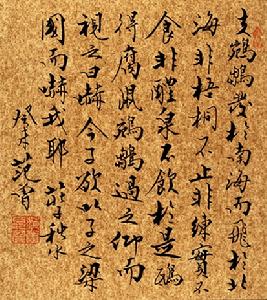 夫鵷鶵發於南海而飛於北
海非梧桐不止非練實不
食非醴泉不飲於是鴟
得腐鼠鵷鶵過之仰而
視之曰嚇今子欲以子之梁
國而嚇我耶 莊子秋水
癸未 范曾